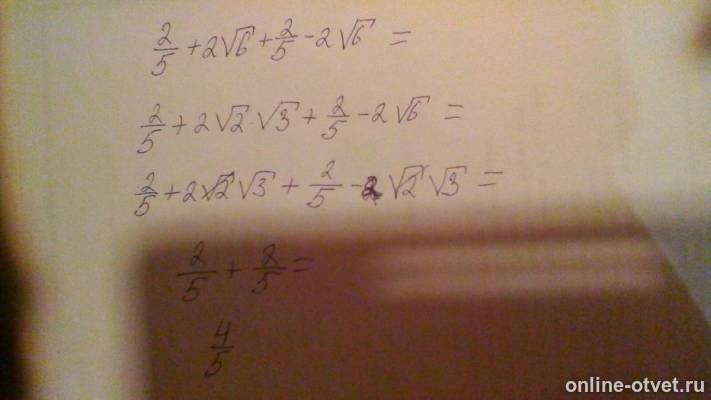 2/5 + 2√6 + 2/5 - 2√6 =
2/5 + 2√2 · √3 + 2/5 - 2√6 =
2/5 + 2√2 √3 + 2/5 - 2 √2 √3 =
2/5 + 2/5 =
4/5
online-otvet.ru